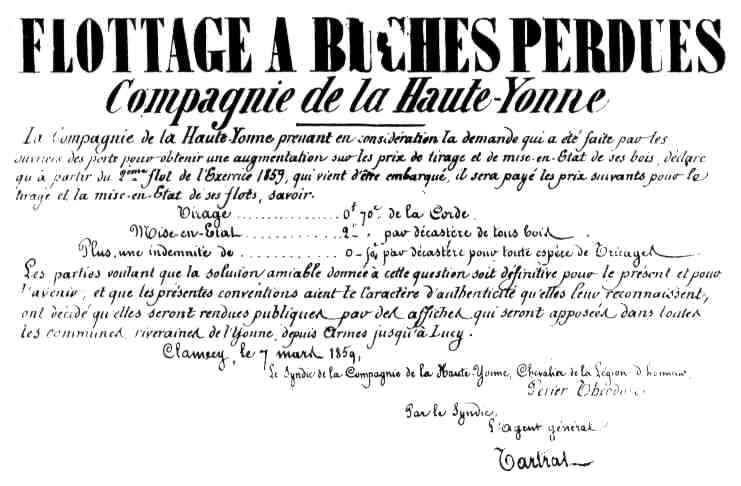 FLOTTAGE A BUCHES PERDUES
Compagnie de la Haute-Yonne
La Compagnie de la Haute-Yonne prenant en considération la demande qui a été faite par les
ouvriers des ports pour obtenir une augmentation sur les prix de tirage et de mise-en-Etat de ses bois, déclare
qu'à partir du 2ème flot de l'Exercice 1859, qui vient d'être embarqué, il sera payé les prix suivants pour le
tirage et la mise-en-Etat de ses flots, savoir.
Tirage .............. 0f 70c de la Corde.
Mise-en-Etat ............. 2 " , par décastère de tous bois.
Plus, une indemnité de ............ 0 - par décastère pour toute espèce de Tricages
Les parties voulant que la solution amiable donnée à cette question soit définitive pour le présent et pour
l'avenir, et que les présentes conventions aient le Caractère d'authenticité qu'elles leur reconnaissent,
ont décidé qu'elles seront rendues publiques par des affiches qui seront apposées dans toutes
les communes riveraines de l'Yonne, depuis Armes jusqu'à Lucy.
Clamecy, le 7 mars 1859,
Le Syndic de la Compagnie de la Haute-Yonne, Chevalier de la Légion d'honneur
Perier Théodore
Par le Syndic,
L'Agent général
Tartrat